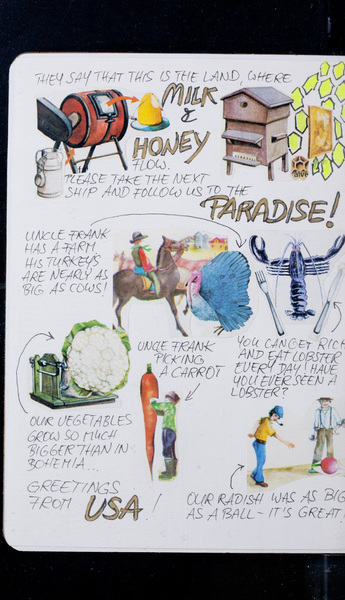 THEY SAY THAT THIS IS THE LAND, WHERE
MILK
&
HONEY
FLOW.
PLEASE TAKE THE NEXT
SHIP AND FOLLOW US TO THE
PARADISE!
UNCLE FRANK
HAS A FARM.
HIS TURKEYS
ARE NEARLY AS
BIG AS COWS!
UNCLE FRANK
PICKING
A CARROT
YOU CAN GET RICH
AND EAT LOBSTER
EVERY DAY! HAVE
YOU EVER SEEN A
LOBSTER?
OUR VEGETABLES
GROW SO MUCH
BIGGER THAN IN
BOHEMIA...
GREETINGS
FROM USA!
OUR RADISH WAS AS BIG
AS A BALL - IT'S GREAT!